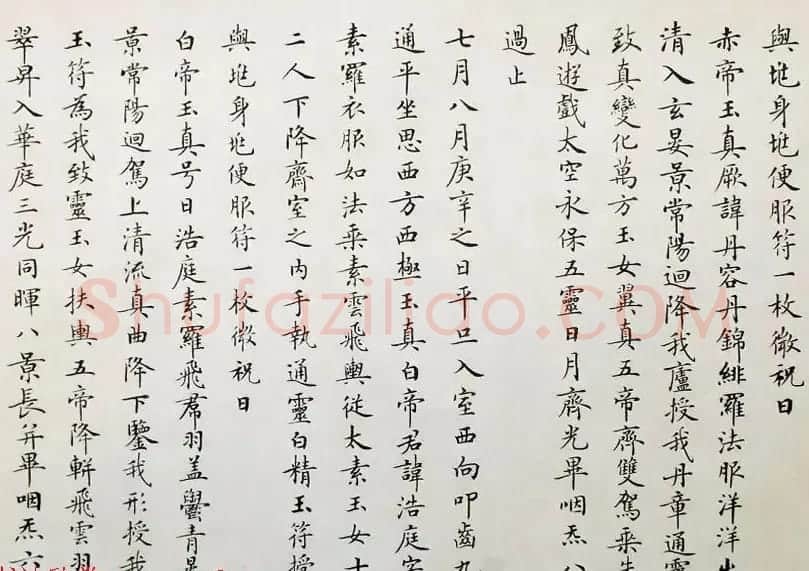 與垗身垗便服符一枚微祝曰
赤帝玉真厥諱丹容丹錦緋羅法服洋洋出
清入玄晏景常陽迴降我廬授我丹章通靈
致真變化萬方玉女翼真五帝齊雙駕乗朱
鳳遊戲太空永保五靈日月齊光畢咽炁八
過止
七月八月庚辛之日平旦入室西向叩齒九
通平坐思西方西極玉真白帝君諱浩庭字
素羅衣服如法乘素雲飛輿從太素玉女十
二人下降齋室之内手執通靈白精玉符授
與垗身垗便服符一枚微祝曰
白帝玉真号曰浩庭素羅飛羣羽盖鬱青
景常陽迴駕上清流真曲降下鑒我形授我
玉符為我致靈玉女扶輿五帝降軿飛雲羽
翠昇入華庭三光同暉八景長并畢咽炁六
Shufaziliao.COM